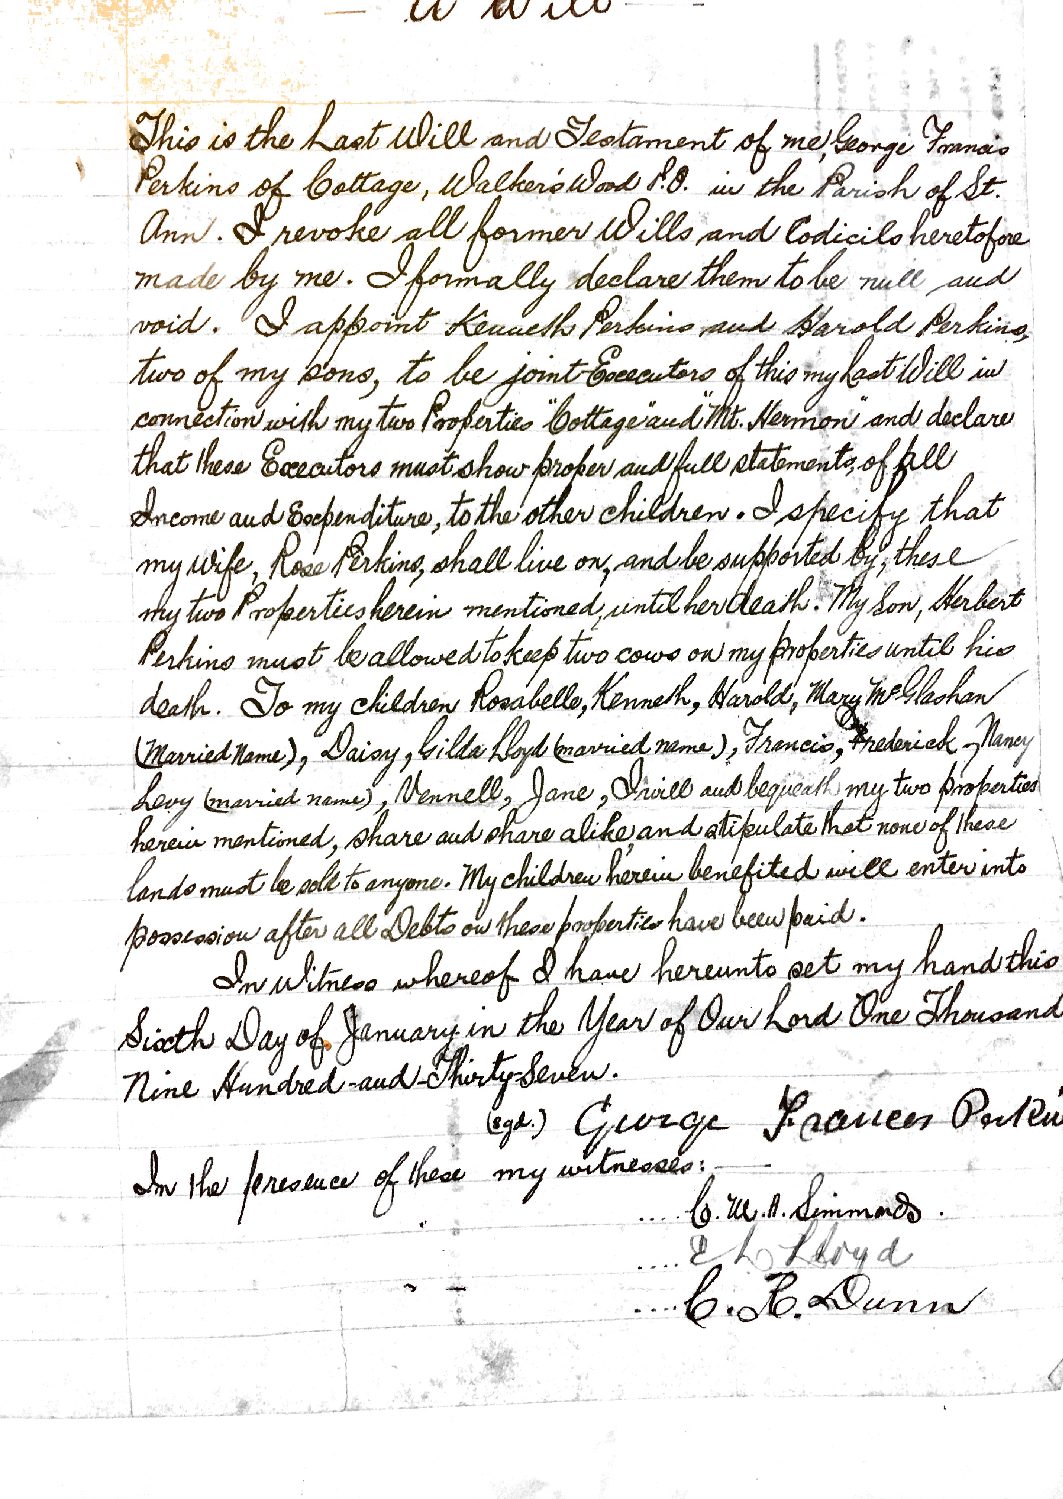 A Will
This is the Last Will and Testament of me, George Francis
Perkins of Cottage, Walker's Wood P.O. in the Parish of St.
Ann. I revoke all former Wills and Codicils heretofore
made by me. I formally declare them to be null and
void. I appoint Kenneth Perkins and Harold Perkins,
two of my sons, to be joint Executors of this my Last Will in
connection with my two Properties "Cottage" and "Mt. Hermon" and declare
that these Executors must show proper and full statements, of all
Income and Expenditure, to the other children. I specify that
my wife, Rose Perkins, shall live on, and be supported by, these
my two Properties herein mentioned, until her death. My Son, Herbert
Perkins must be allowed to keep two cows on my properties until his
death. To my children Rosabelle, Kenneth, Harold, Mary McGlashan
(Married Name), Daisy, Gilda Lloyd (married name), Francis, Frederick, Nancy
Levy (married name), Vennell, Jane, I will and bequeath my two properties
herein mentioned, share and share alike, and stipulate that none of these
lands must be sold to anyone. My children herein benefited will enter into
possession after all Debts on these properties have been paid.
In Witness whereof I have hereunto set my hand this
Sixth Day of January in the Year of Our Lord One Thousand
Nine Hundred-and-Thirty-Seven.
(sgd.) George Frances Perkin
In the presence of these my witnesses:
.... C. M. A. Simmonds.
.... E L Lloyd
.... C. R. Dunn